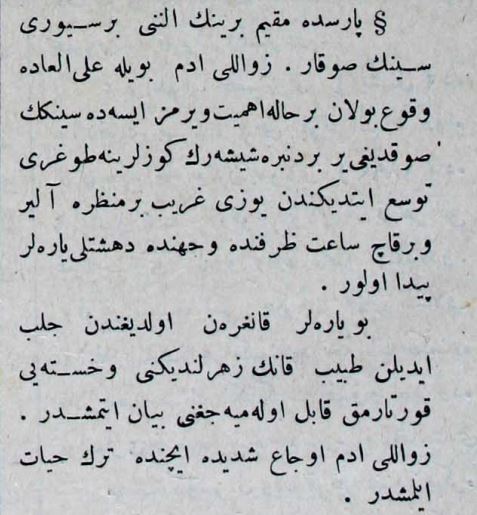 § پارسده مقیم برینك النی برسیوری
سینك صوقار . زواللی ادم بویله علی‌العاده
وقوع بولان بر حاله اهمیت ویرمز ایسه‌ده سینكك
صوقدیغی یر بردنبره شیشه‌رك كوزلرینه طوغری
توسع ایتدیكندن یوزی غریب برمنظره آلیر
و برقاچ ساعت ظرفنده وجهنده دهشتلی یاره‌لر
پیدا اولور .
بو یاره‌لر قانغره‌ن اولدیغندن جلب
ایدیلن طبیب قانك زهرلندیكنی و خسته‌یی
قورتارمق قابل اوله‌میه‌جغنی بیان ایتمشدر .
زواللی ادم اوجاع شدیده ایچنده ترك حیات
ایلمشدر .